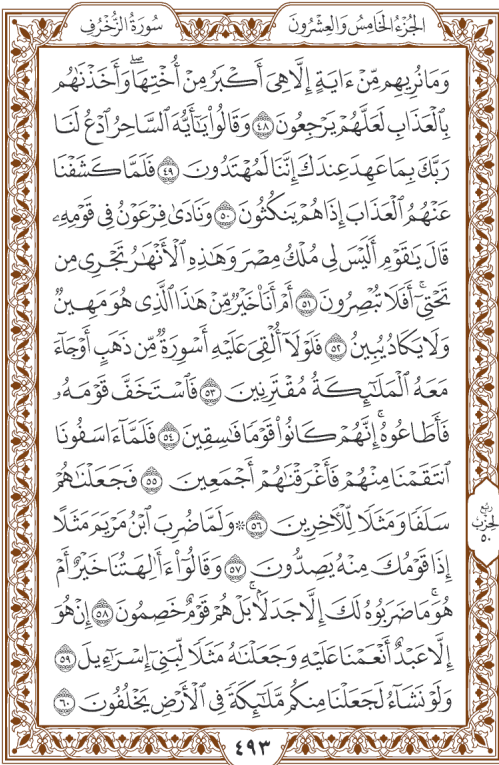 سُورَةُ الزُّخْرُفِ
الجُزْءُ الخَامِسُ وَالعِشْرُونَ
وَمَا نُرِيهِم مِّنْ ءَايَةٍ إِلَّا هِىَ أَكْبَرُ مِنْ أُخْتِهَاۖ وَأَخَذْنَٰهُم
بِٱلْعَذَابِ لَعَلَّهُمْ يَرْجِعُونَ ٤٨ وَقَالُوا۟ يَٰٓأَيُّهَ ٱلسَّاحِرُ ٱدْعُ لَنَا
رَبَّكَ بِمَا عَهِدَ عِندَكَ إِنَّنَا لَمُهْتَدُونَ ٤٩ فَلَمَّا كَشَفْنَا
عَنْهُمُ ٱلْعَذَابَ إِذَا هُمْ يَنكُثُونَ ٥٠ وَنَادَىٰ فِرْعَوْنُ فِى قَوْمِهِۦ
قَالَ يَٰقَوْمِ أَلَيْسَ لِى مُلْكُ مِصْرَ وَهَٰذِهِ ٱلْأَنْهَٰرُ تَجْرِى مِن
تَحْتِىٓۚ أَفَلَا تُبْصِرُونَ ٥١ أَمْ أَنَا۠ خَيْرٌ مِّنْ هَٰذَا ٱلَّذِى هُوَ مَهِينٌ
وَلَا يَكَادُ يُبِينُ ٥٢ فَلَوْلَآ أُلْقِىَ عَلَيْهِ أَسْوِرَةٌ مِّن ذَهَبٍ أَوْ جَآءَ
مَعَهُ ٱلْمَلَٰٓئِكَةُ مُقْتَرِنِينَ ٥٣ فَٱسْتَخَفَّ قَوْمَهُۥ
فَأَطَاعُوهُۚ إِنَّهُمْ كَانُوا۟ قَوْمًا فَٰسِقِينَ ٥٤ فَلَمَّآ ءَاسَفُونَا
ٱنتَقَمْنَا مِنْهُمْ فَأَغْرَقْنَٰهُمْ أَجْمَعِينَ ٥٥ فَجَعَلْنَٰهُمْ
سَلَفًا وَمَثَلًا لِّلْءَاخِرِينَ ٥٦ ۞ وَلَمَّا ضُرِبَ ٱبْنُ مَرْيَمَ مَثَلًا
إِذَا قَوْمُكَ مِنْهُ يَصِدُّونَ ٥٧ وَقَالُوٓا۟ ءَأَٰلِهَتُنَا خَيْرٌ أَمْ
هُوَۚ مَا ضَرَبُوهُ لَكَ إِلَّا جَدَلًۢاۚ بَلْ هُمْ قَوْمٌ خَصِمُونَ ٥٨ إِنْ هُوَ
إِلَّا عَبْدٌ أَنْعَمْنَا عَلَيْهِ وَجَعَلْنَٰهُ مَثَلًا لِّبَنِىٓ إِسْرَٰٓءِيلَ ٥٩
وَلَوْ نَشَآءُ لَجَعَلْنَا مِنكُم مَّلَٰٓئِكَةً فِى ٱلْأَرْضِ يَخْلُفُونَ ٦٠
ربع
الحزب
٥٠
٤٩٣